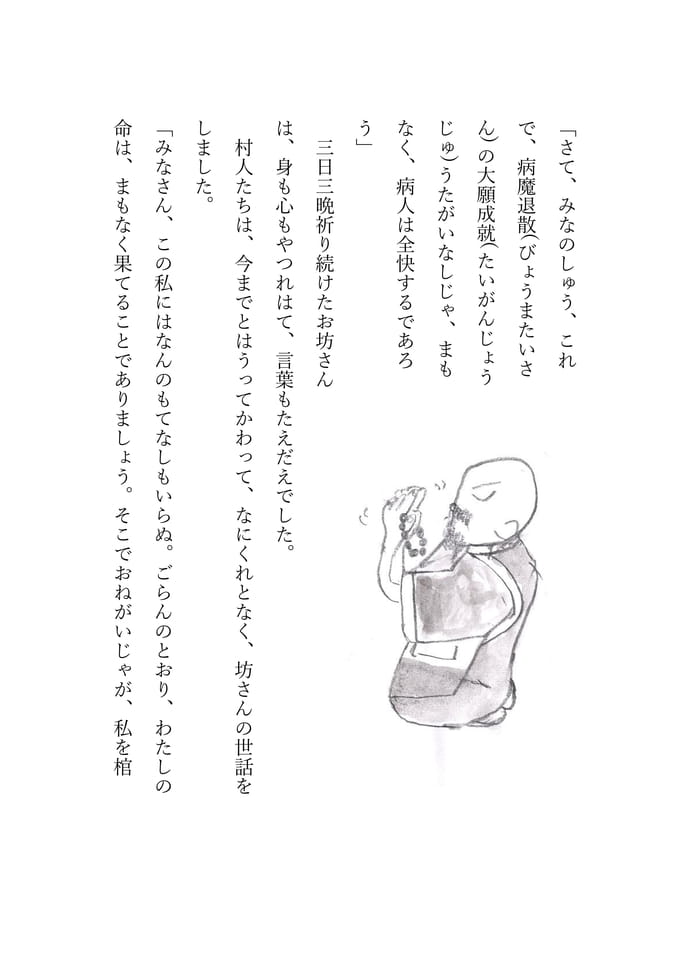 「さて、みなのしゅう、これ
で、病魔退散(びょうまたいさ
ん)の大願成就(たいがんじょう
じゅ)うたがいなしじゃ、まも
なく、病人は全快するであろ
う」
三日三晩祈り続けたお坊さん
は、身も心もやつれはて、言葉もたえだえでした。
村人たちは、今までとはうってかわって、なにくれとなく、坊さんの世話を
しました。
「みなさん、この私にはなんのもてなしもいらぬ。ごらんのとおり、わたしの
命は、まもなく果てることでありましょう。そこでおねがいじゃが、私を棺